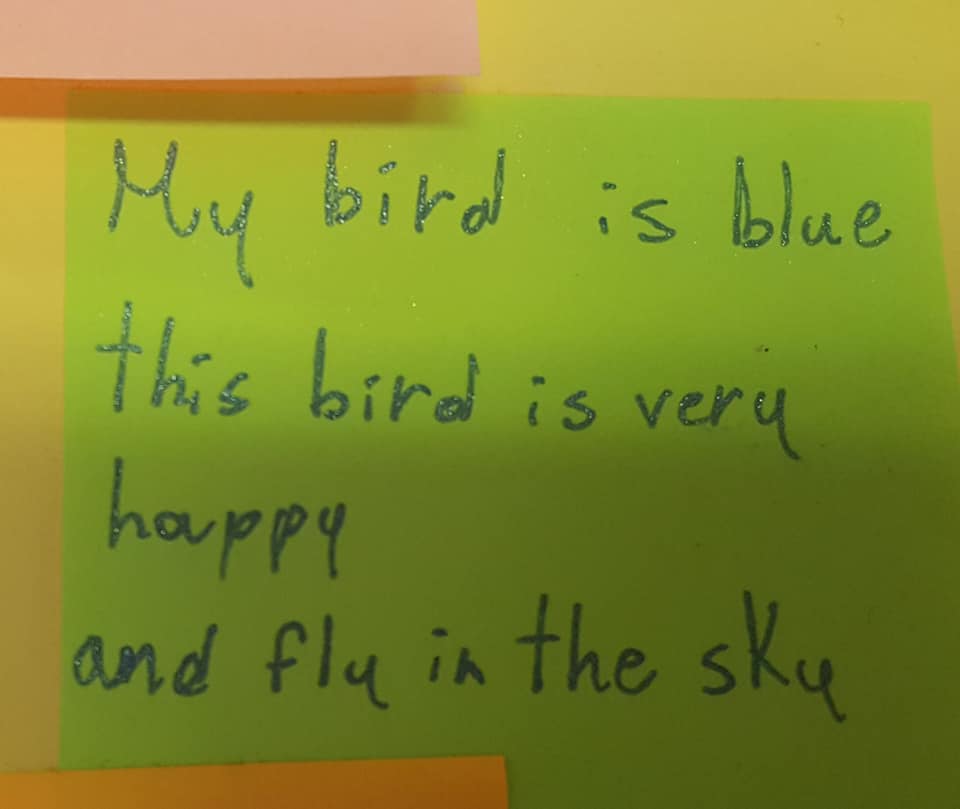 My bird is blue
this bird is very
happy
and fly in the sky